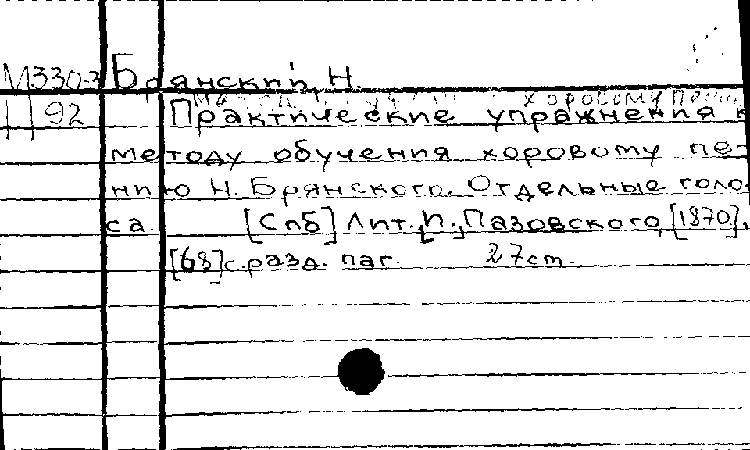 М330-3 Брянский, Н.
хоровому пению
Н92 Практические упражнения к
методу обучения хоровому пе-
нию Н. Брянского. Отдельные голо-
са. [Спб] Лит. И. Пазовского, [1870].
[68] с. разд. паг. 27 cm.